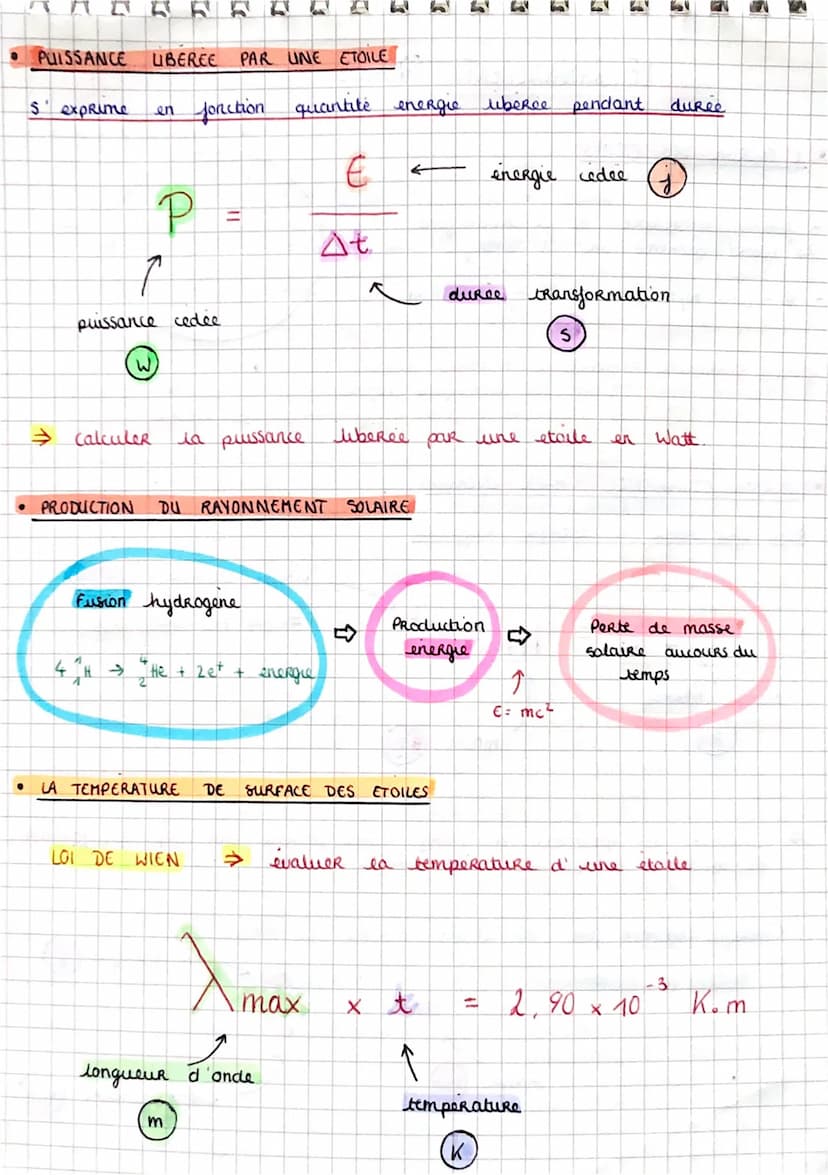 • PUISSANCE LIBÉRÉE PAR UNE ETOILE
s' exprime en fonction quantité energie liberée pendant durée
P = E / Δt
← énergie cédée (j)
puissance cedée (W)
durée transformation (s)
⇒ calculer la puissance liberée par une etoile en Watt.
• PRODUCTION DU RAYONNEMENT SOLAIRE
Fusion hydrogène
4 ¹₁H → ⁴₂He + 2e⁺ + energie
⇒ Production
energie
⇒
E = mc²
Perte de masse
solaire aucours du
temps
• LA TEMPÉRATURE DE SURFACE DES ETOILES
LOI DE WIEN ⇒ évaluer la température d' une étoile
λmax x t = 2,90 x 10⁻³ K.m
longueur d'onde
m
température
K